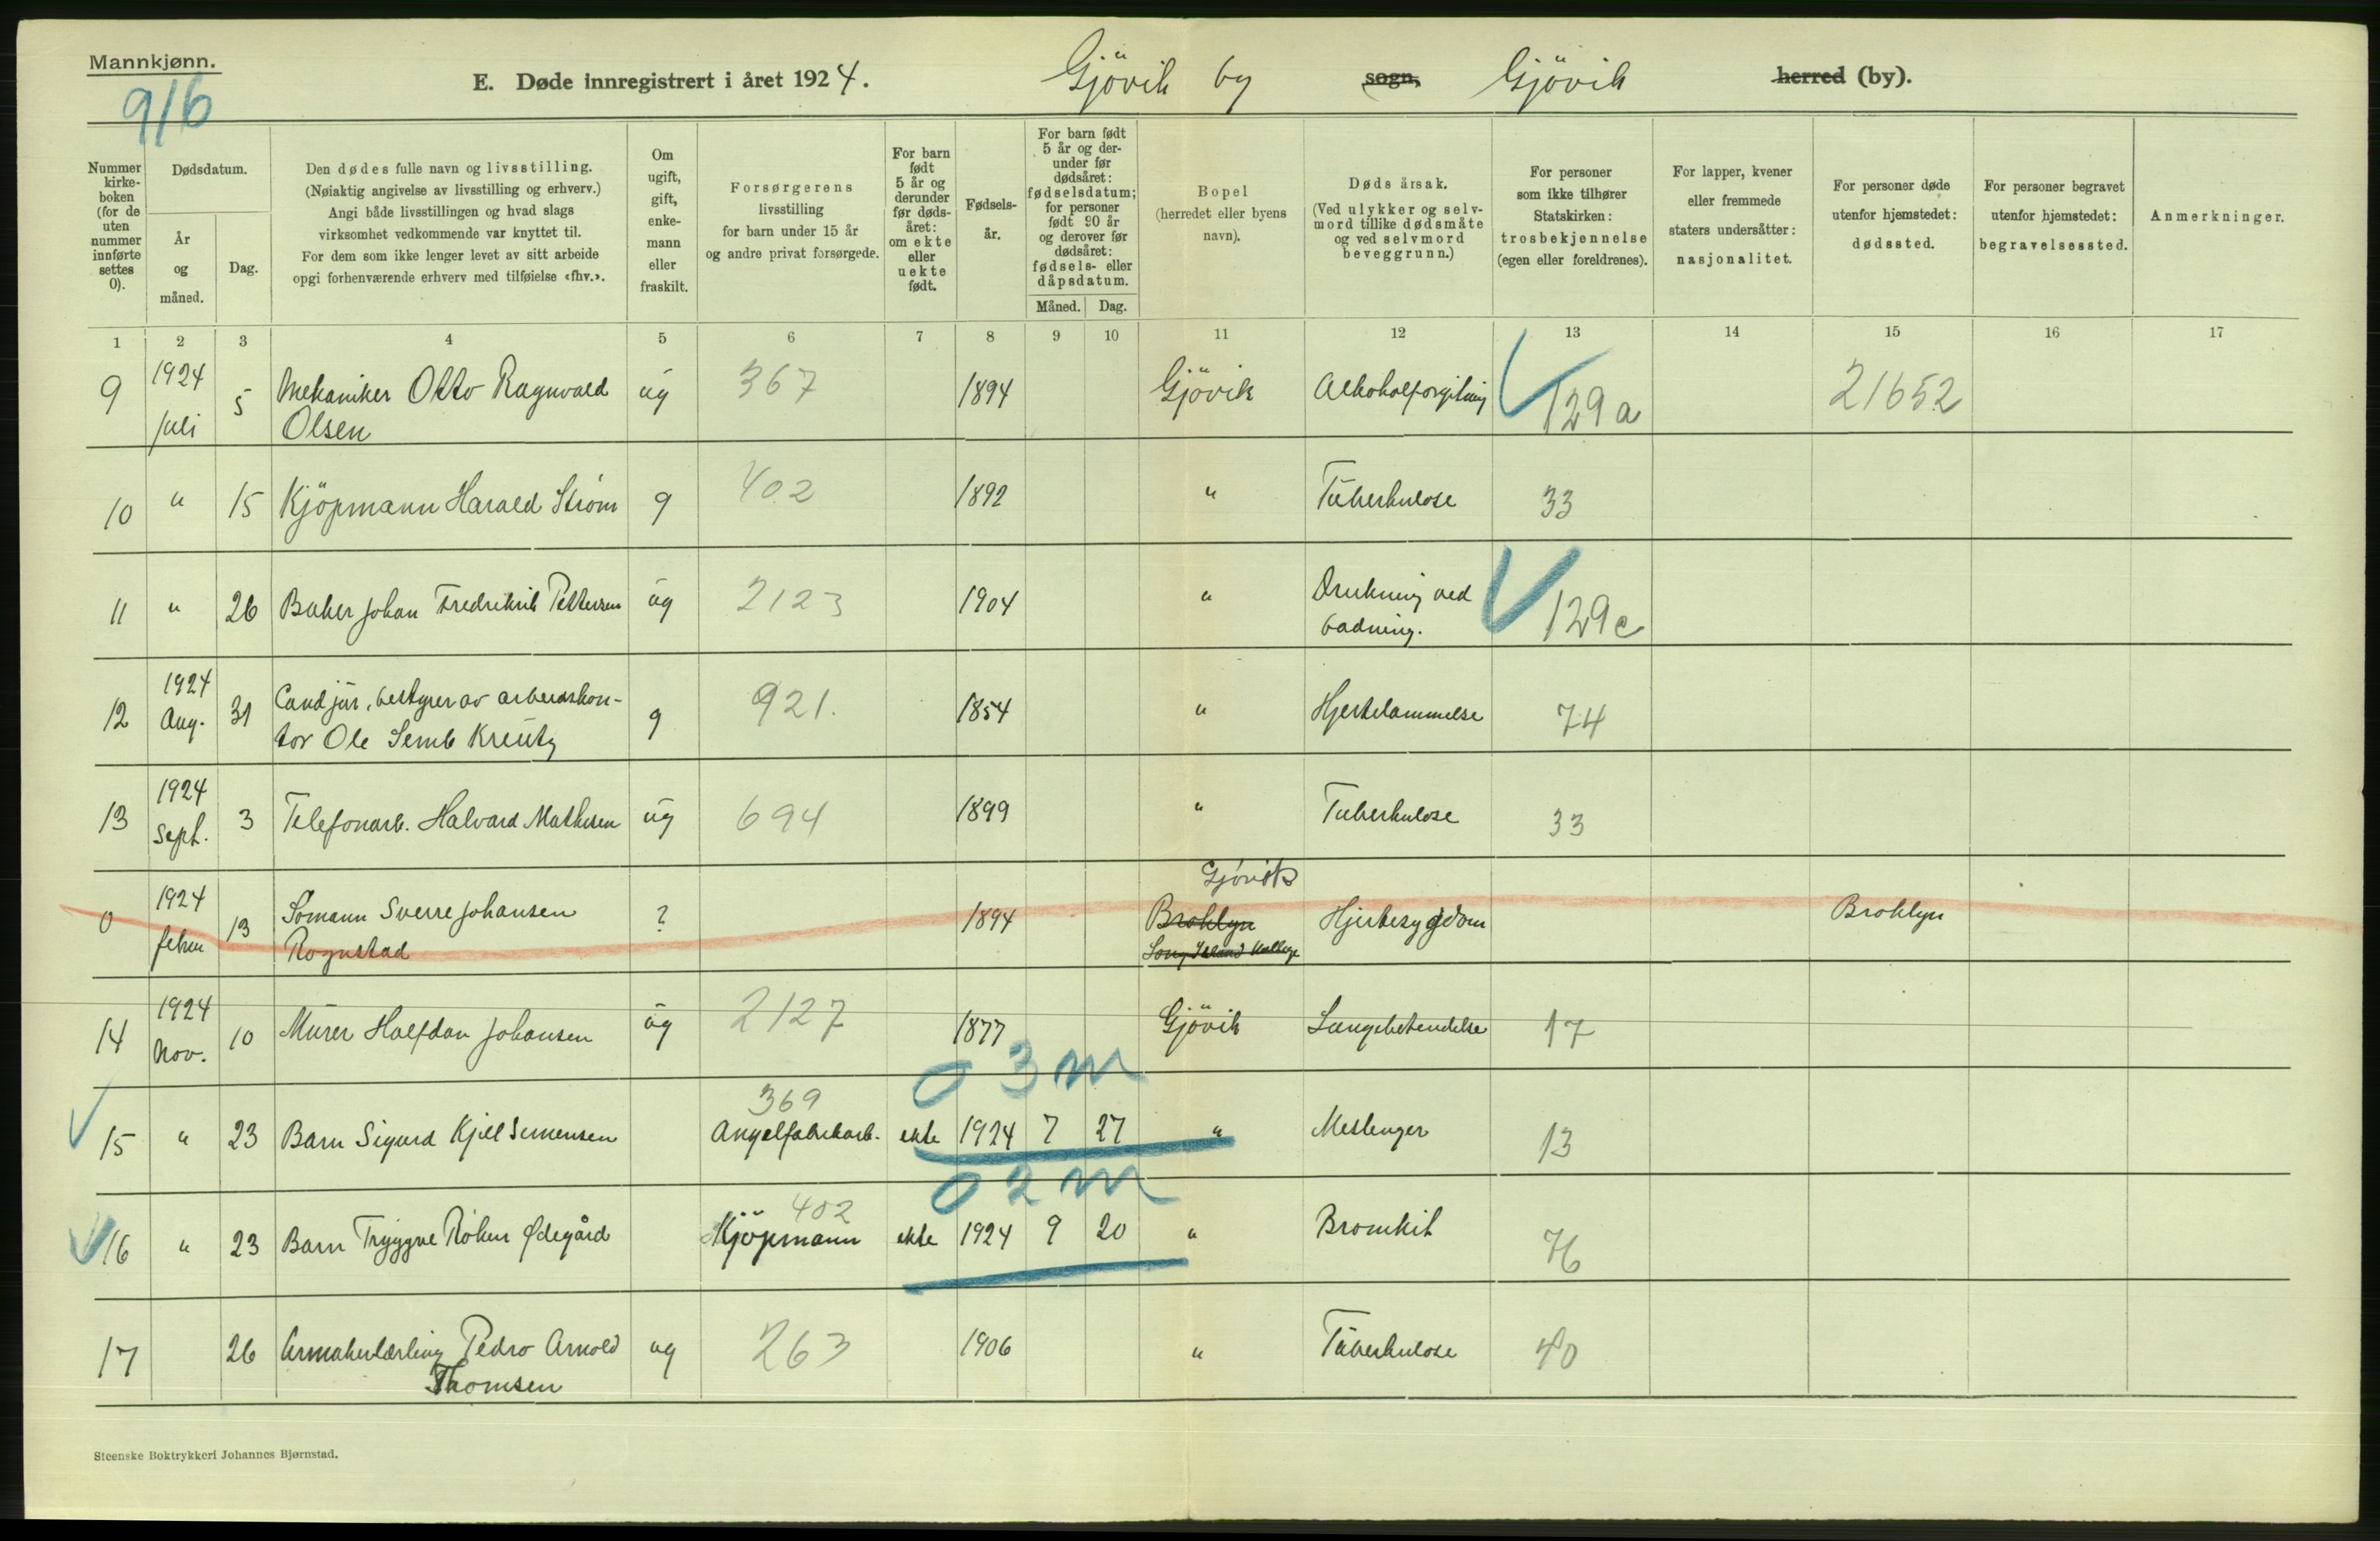 Mannkjønn.
916
E. Døde innregistrert i året 1924.
Gjövik by
sogn,
Gjövik
herred (by).
Nummer kirke-boken (for de uten nummer innførte settes 0).
Dødsdatum.
År og måned.
Dag.
Den dødes fulle navn og livsstilling.
(Nøiaktig angivelse av livsstilling og erhverv.)
Angi både livsstillingen og hvad slags
virksomhet vedkommende var knyttet til.
For dem som ikke lenger levet av sitt arbeide
opgi forhenværende erhverv med tilføielse «fhv.».
Om ugift, gift, enke-mann eller fraskilt.
Forsørgerens
livsstilling
for barn under 15 år
og andre privat forsørgede.
For barn født 5 år og derunder før døds-året: om ekte eller uekte født.
Fødsels-år.
For barn født 5 år og der-under før dødsåret: fødselsdatum; for personer født 90 år og derover før dødsåret: fødsels- eller dåpsdatum.
Måned. Dag.
Bopel
(herredet eller byens
navn).
Dødsårsak.
(Ved ulykker og selv-
mord tillike dødsmåte
og ved selvmord
beveggrunn.)
For personer
som ikke tilhører
Statskirken:
trosbekjennelse
(egen eller foreldrenes).
For lapper, kvener
eller fremmede
staters undersåtter:
nasjonalitet.
For personer døde
utenfor hjemstedet:
dødssted.
For personer begravet
utenfor hjemstedet:
begravelsessted.
Anmerkninger.
1 2 3 4 5 6 7 8 9 10 11 12 13 14 15 16 17
9 1924 juli 5 Mekaniker Otto Ragnvald Olsen ug 367 1894 Gjövik Alkoholforgiftning 129a 21652
10 " 15 Kjöpmann Harald Strøm g 402 1892 " Tuberkulose 33
11 " 26 Baker Johan Fredrikrik Pettersen ug 2123 1904 " Drukning ved badning. 129c
12 1924 Aug. 31 Cand jur, bestyrer av arbeidskon-
tor Ole Semb Kreutz g 921. 1854 " Hjertelammelse 74
13 1924 Sept. 3 Telefonarb. Halvard Mathisen ug 694 1899 " Tuberkulose 33
Gjøvik
0 1924 febru 13 Sömann Sverre Johansen Rognstad ? 1894 Broklyn Hjertesygdom Broklyn
14 1924 Nov. 10 Murer Halfdan Johansen ug 2127 1877 Gjövik Lungebetendelse 17
03m
369
15 " 23 Barn Sigurd Kjell Simensen Angelfabrikarb. ekte 1924 7 27 " Meslenger 13
02m
402
16 " 23 Barn Tryggve Röken Ødegård Kjöpmann ekte 1924 9 20 " Bronkit 76
17 26 Urmakerlærling Pedro Arnold
Thomsen ug 263 1906 " Tuberkulose 40
Steenske Boktrykkeri Johannes Bjørnstad.